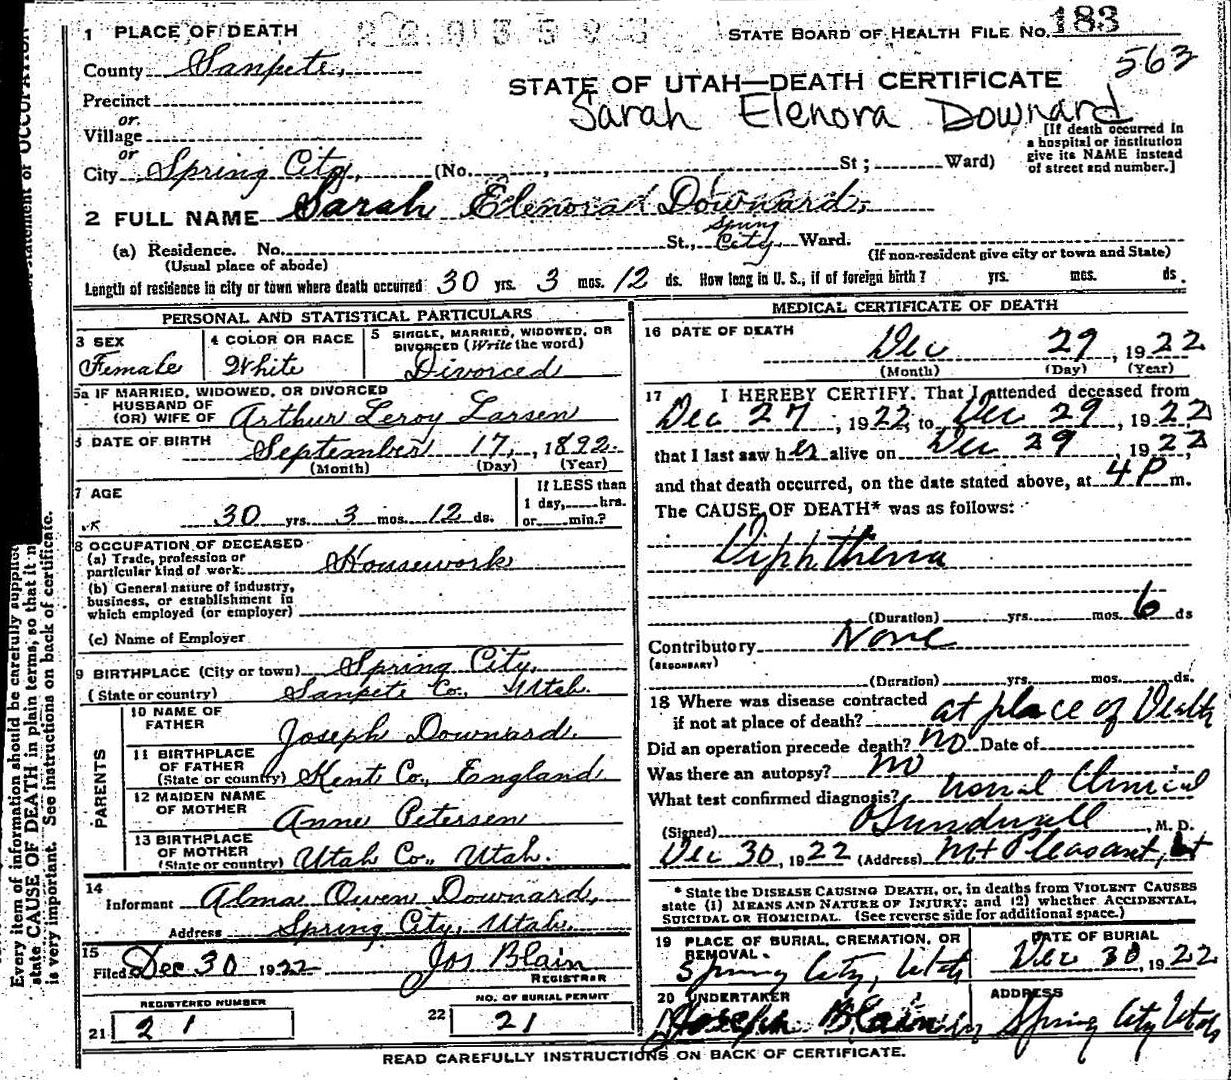 1 PLACE OF DEATH
STATE BOARD OF HEALTH FILE NO. 183
563
County Sanpete,
STATE OF UTAH—DEATH CERTIFICATE
Precinct
Sarah Elenora Downard
or
Village
or
[If death occurred in
a hospital or institution
give its NAME instead
of street and number.]
City Spring City, (No. , St; Ward)
2 FULL NAME Sarah Elenora Downard,
(a) Residence. No. St., Spring City Ward.
(Usual place of abode)
(If non-resident give city or town and State)
Length of residence in city or town where death occurred 30 yrs. 3 mos. 12 ds. How long in U. S., if of foreign birth? yrs. mos. ds.
PERSONAL AND STATISTICAL PARTICULARS
3 SEX
Female
4 COLOR OR RACE
White
5 SINGLE, MARRIED, WIDOWED, OR
DIVORCED (Write the word)
Divorced
5a IF MARRIED, WIDOWED, OR DIVORCED
HUSBAND OF
(OR) WIFE OF Arthur Leroy Larsen
6 DATE OF BIRTH September 17, 1892.
(Month) (Day) (Year)
7 AGE
30 yrs. 3 mos. 12 ds.
If LESS than
1 day, hrs.
or min.?
8 OCCUPATION OF DECEASED
(a) Trade, profession or
particular kind of work. Housework
(b) General nature of industry,
business, or establishment in
which employed (or employer)
(c) Name of Employer
9 BIRTHPLACE (City or town) Spring City,
(State or country) Sanpete Co., Utah.
PARENTS
10 NAME OF
FATHER Joseph Downard.
11 BIRTHPLACE
OF FATHER
(State or country) Kent Co., England
12 MAIDEN NAME
OF MOTHER Anne Petersen
13 BIRTHPLACE
OF MOTHER
(State or country) Utah Co., Utah.
14
Informant Alma Owen Downard,
Address Spring City, Utah.
15
Filed Dec 30 1922 Jos Blain
REGISTRAR
REGISTERED NUMBER
21 21
NO. OF BURIAL PERMIT
22 21
MEDICAL CERTIFICATE OF DEATH
16 DATE OF DEATH
Dec 29, 1922
(Month) (Day) (Year)
17 I HEREBY CERTIFY, That I attended deceased from
Dec 27, 1922, to Dec 29, 1922
that I last saw her alive on Dec 29, 1922,
and that death occurred, on the date stated above, at 4 P m.
The CAUSE OF DEATH* was as follows:
Diphtheria
(Duration) yrs. mos. 6 ds
Contributory None
(SECONDARY)
(Duration) yrs. mos. ds.
18 Where was disease contracted
if not at place of death? at place of Death
Did an operation precede death? no Date of
Was there an autopsy? no
What test confirmed diagnosis? Clinical
(Signed) O Sundwall, M. D.
Dec 30, 1922 (Address) Mt Pleasant, Ut
* State the DISEASE CAUSING DEATH, or, in deaths from VIOLENT CAUSES
state (1) MEANS AND NATURE OF INJURY; and (2) whether ACCIDENTAL,
SUICIDAL OR HOMICIDAL. (See reverse side for additional space.)
19 PLACE OF BURIAL, CREMATION, OR
REMOVAL.
Spring City, Utah
DATE OF BURIAL
Dec 30, 1922
20 UNDERTAKER
Joseph Blain
ADDRESS
Spring City Utah
READ CAREFULLY INSTRUCTIONS ON BACK OF CERTIFICATE.
Every item of information should be carefully supplied
state CAUSE OF DEATH in plain terms, so that it
is very important. See instructions on back of certificate.
statement of OCCUPATION